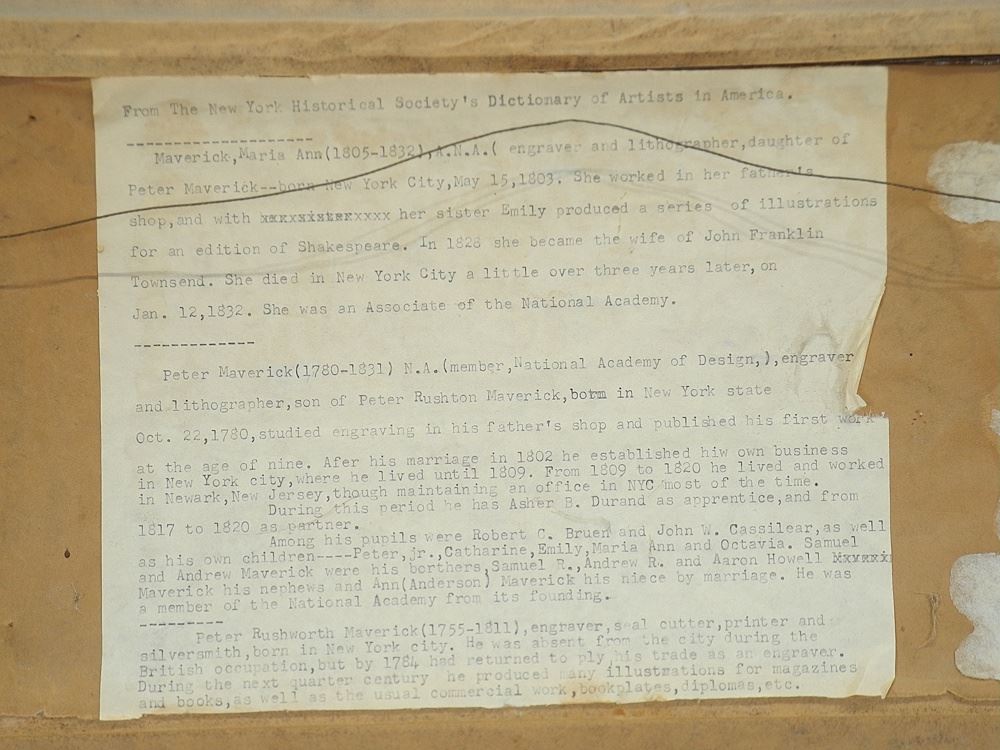 From The New York Historical Society's Dictionary of Artists in America.
-------------------
Maverick,Maria Ann(1805-1832),A.N.A.( engraver and lithographer,daughter of
Peter Maverick--born New York City,May 15,1803. She worked in her father's
shop,and with xxxxxixterxxxx her sister Emily produced a series of illustrations
for an edition of Shakespeare. In 1828 she became the wife of John Franklin
Townsend. She died in New York City a little over three years later,on
Jan. 12,1832. She was an Associate of the National Academy.
-------------
Peter Maverick(1780-1831) N.A.(member,National Academy of Design,),engraver
and lithographer,son of Peter Rushton Maverick,born in New York state
Oct. 22,1780,studied engraving in his father's shop and published his first work
at the age of nine. Afer his marriage in 1802 he established hiw own business
in New York city,where he lived until 1809. From 1809 to 1820 he lived and worked
in Newark,New Jersey,though maintaining an office in NYC most of the time.
During this period he has Asher B. Durand as apprentice,and from
1817 to 1820 as partner.
Among his pupils were Robert C. Bruen and John W. Cassilear,as well
as his own children----Peter,jr.,Catharine,Emily,Maria Ann and Octavia. Samuel
and Andrew Maverick were his borthers,Samuel R.,Andrew R. and Aaron Howell
Maverick his nephews and Ann(Anderson) Maverick his niece by marriage. He was
a member of the National Academy from its founding.
---------
Peter Rushworth Maverick(1755-1811),engraver,seal cutter,printer and
silversmith,born in New York city. He was absent from the city during the
British occupation,but by 1784 had returned to ply his trade as an engraver.
During the next quarter century he produced many illustrations for magazines
and books,as well as the usual commercial work,bookplates,diplomas,etc.